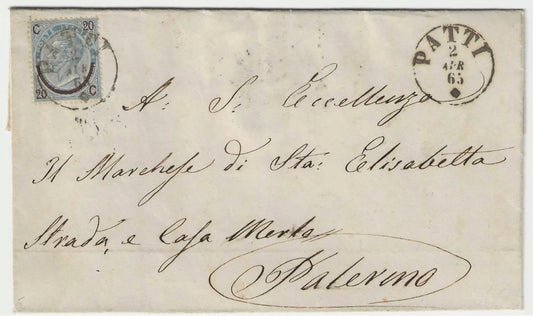 C 20
20 C
PATTI
PATTI
2
APR
65
A: S: Eccellenza
Il Marchese di Sta: Elisabetta
Strada, e Casa Merlo
Palermo